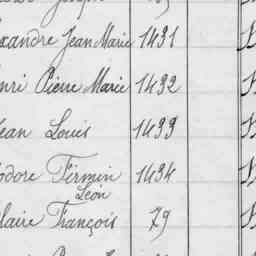 xandre Jean Marie 1431
nri Pierre Marie 1432
Jean Louis 1433
odore Firmin 1434
Léon
laire François 79